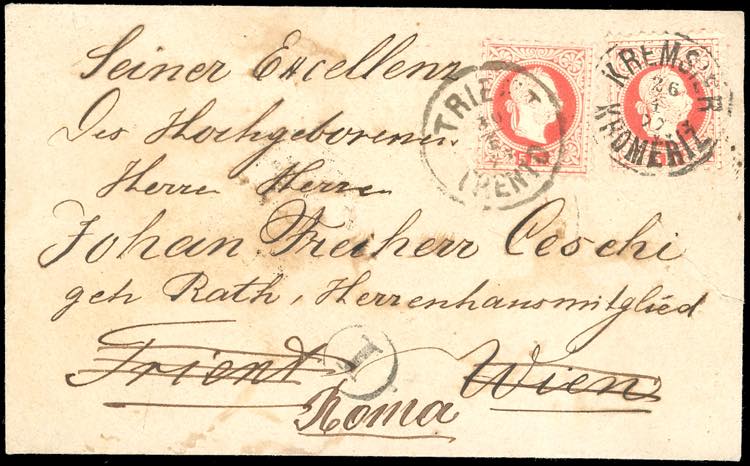 Seiner Excellenz
Des Hochgeborenen
Herrn Herrn
Johan Freiherr Ceschi
geh Rath, Herrenhausmitglied
Trient Wien
Roma
TRIENT
TRENTO
KREMSIER
26
KROMĚŘIŽ
I